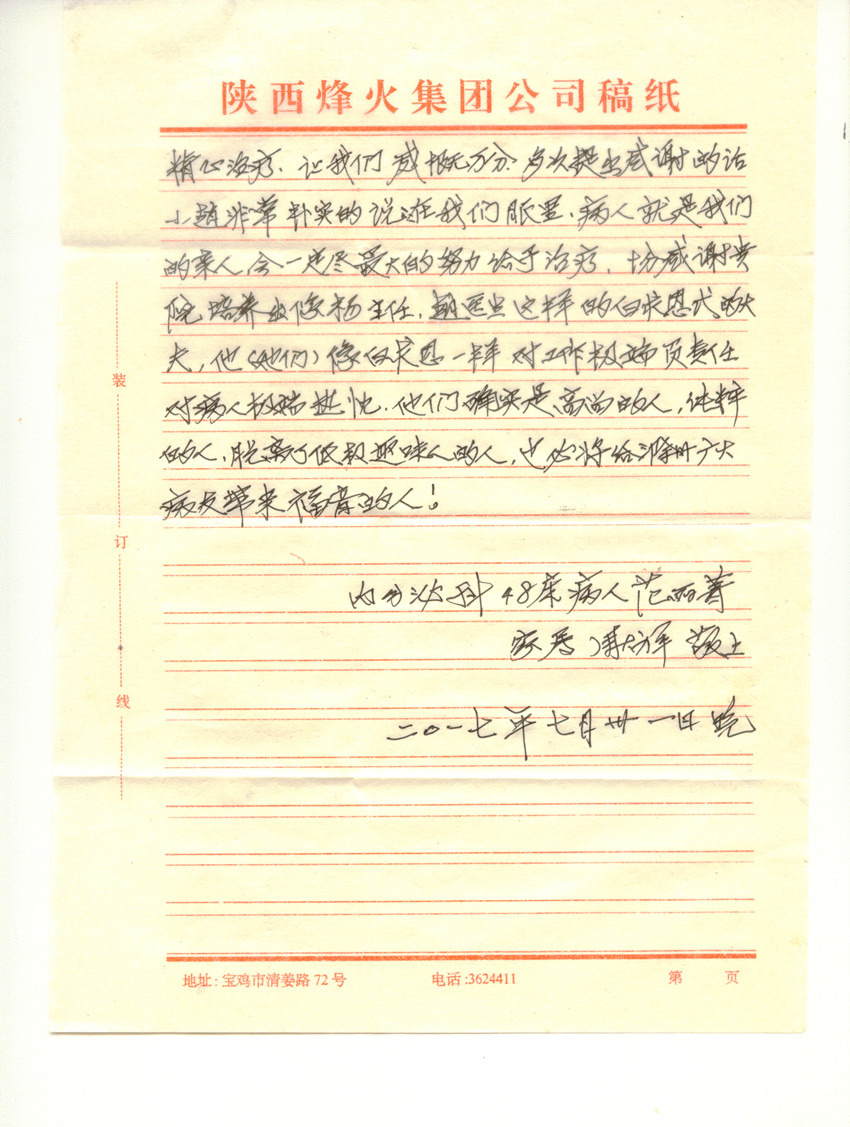 陕西烽火集团公司稿纸
精心治疗、让我们感慨万分、多次提出感谢的话
小赵非常朴实的说：在我们眼里、病人就是我们
的亲人会一定尽最大的努力给予治疗，十分感谢贵
院培养出像杨主任，赵医生这样的白求恩式的大
夫，他（她们）像白求恩一样对工作极端负责任
对病人极端热忱．他们确实是高尚的人，纯粹
的人，脱离了低级趣味人的人，也必将给广大
病友带来福音的人！
内分泌科48床病人范
家属
二〇一七年七月卅一日晚
装
订
线
地址：宝鸡市清姜路72号
电话:3624411
第 页